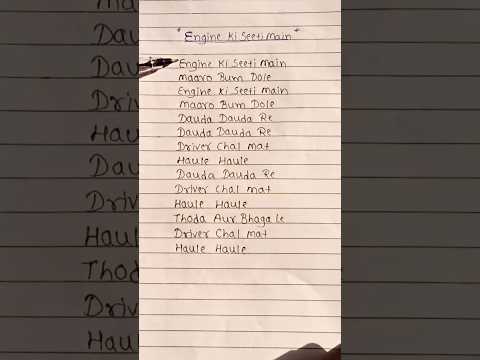 "Engine Ki Seeti Main"
Engine Ki Seeti Main
maaro Bum Dole
Engine Ki Seeti main
maaro Bum Dole
Dauda Dauda Re
Dauda Dauda Re
Driver Chal mat
Haule Haule
Dauda Dauda Re
Driver Chal mat
Haule Haule
Thoda Aur Bhaga le
Driver Chal mat
Haule Haule